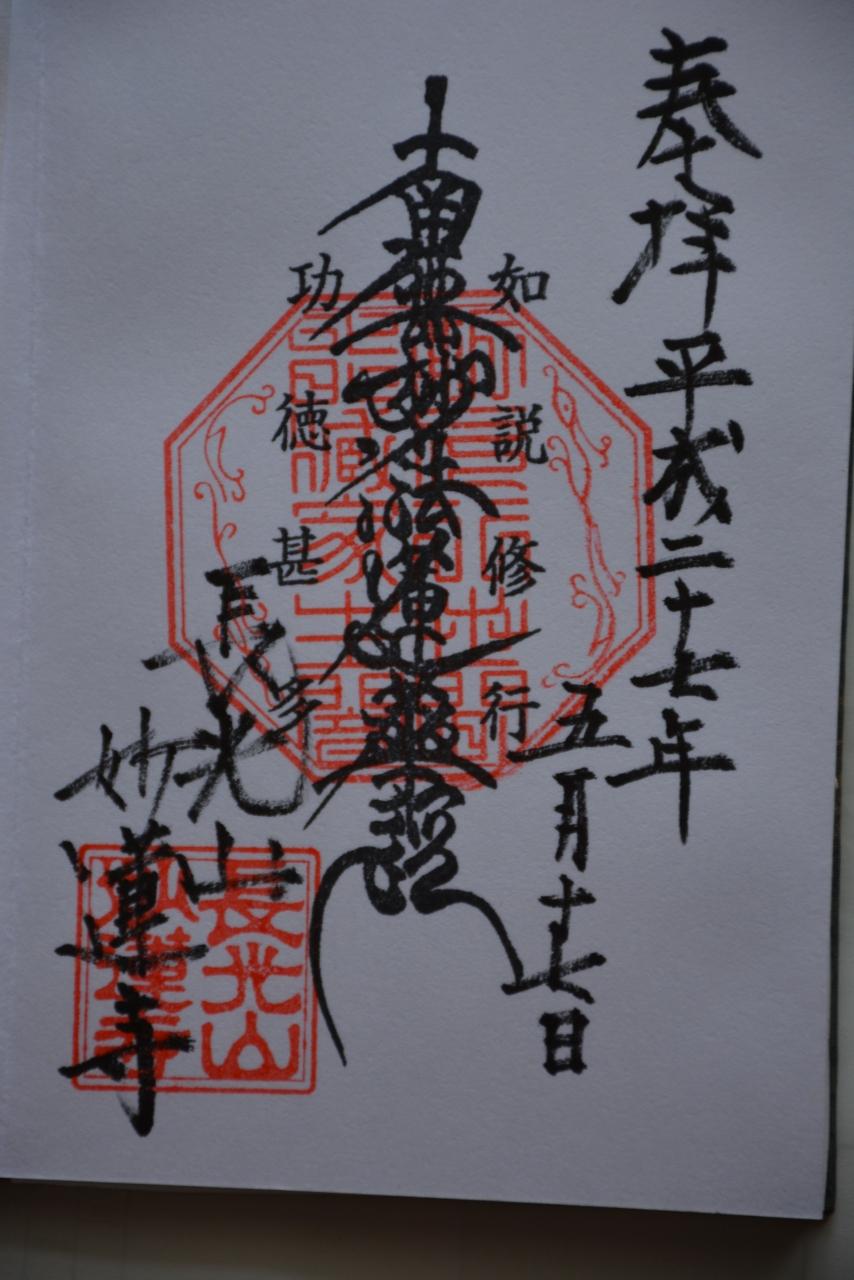 奉拝 平成二十七年
五月十七日
如説修行
南無妙法蓮華経
功徳甚多
長光山
妙蓮寺
長光山
妙蓮寺